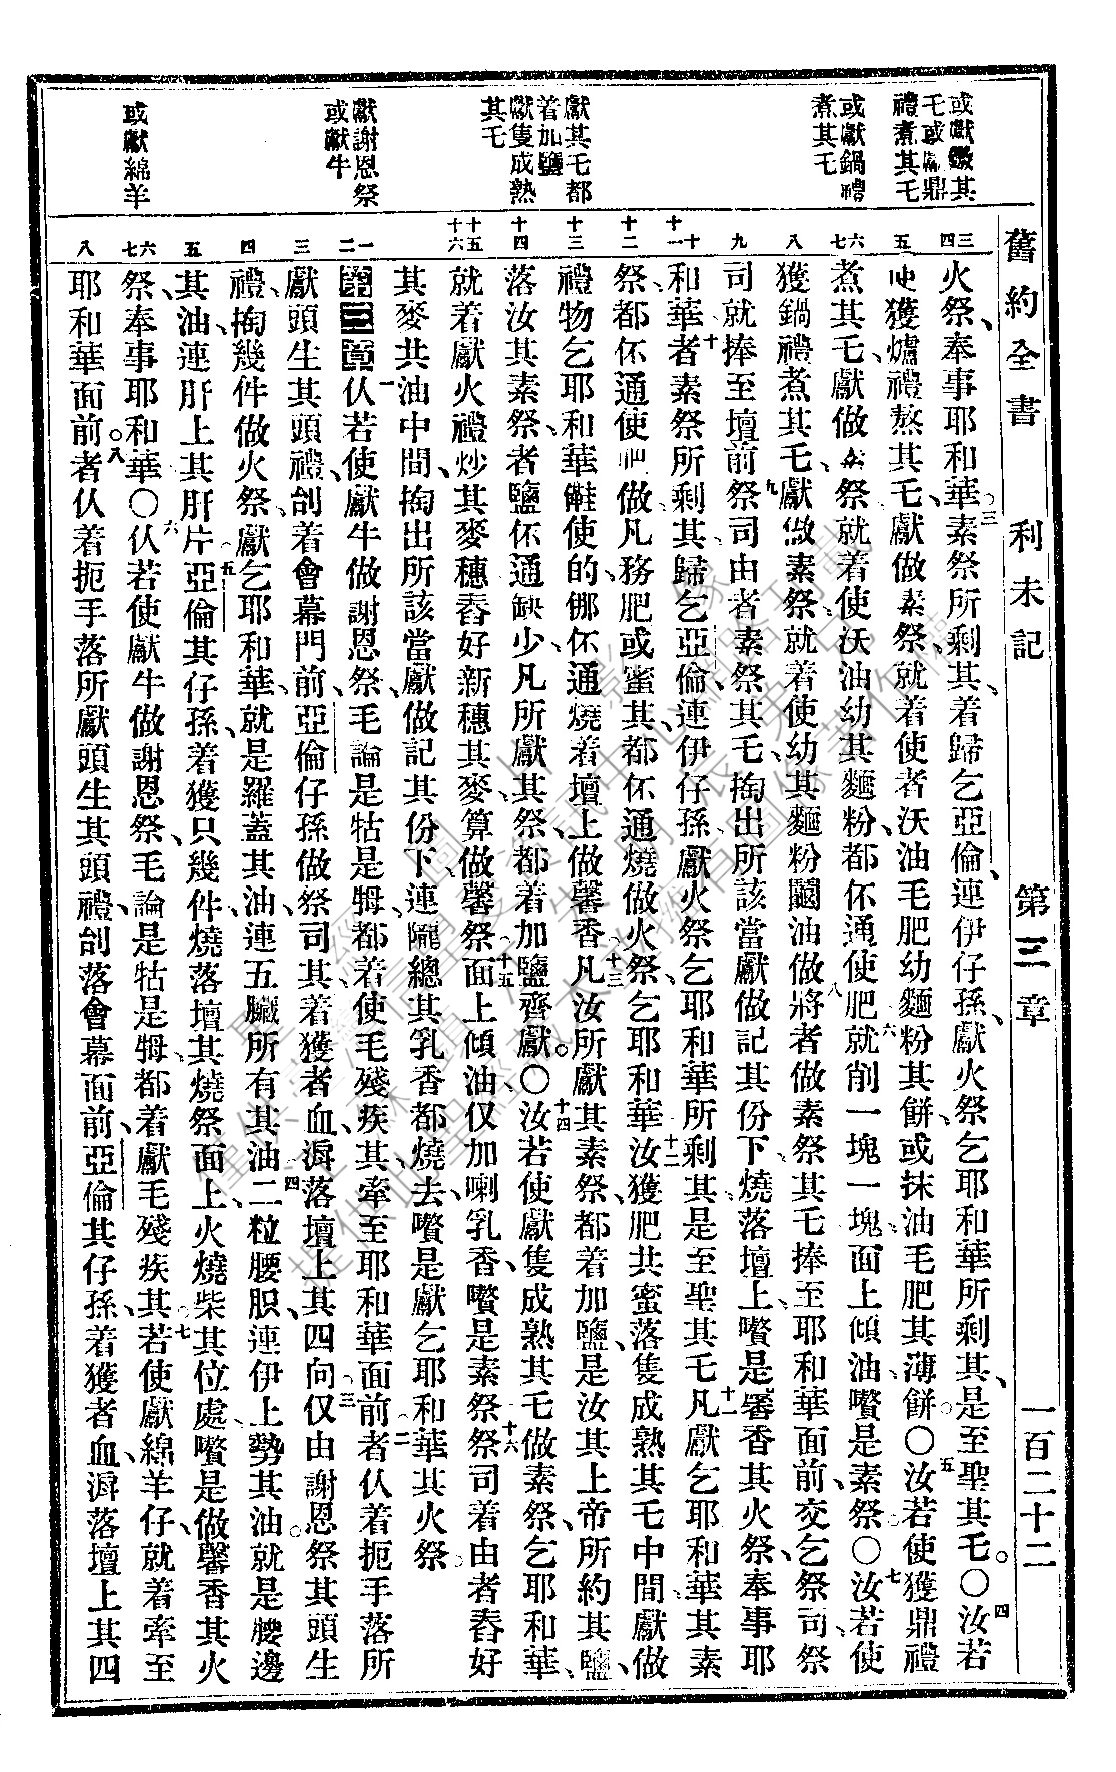 舊約全書 利未記 第三章 一百二十二
或獻鏾其
乇或獻鼎
禮煮其乇
或獻鍋禮
煮其乇
獻其乇都
着加鹽
獻隻成熟
其乇
獻謝恩祭
或獻牛
或獻綿羊
三 四 五 六 七 八 九 十 十一 十二 十三 十四 十五 十六 一 二 三 四 五 六 七 八
火祭、奉事耶和華、三素祭所剩其、着歸乞亞倫、連伊仔孫、獻火祭、乞耶和華所剩其、是至聖其乇。〇四汝若
使獲爐禮熬其乇、獻做素祭、就着使者沃油毛肥幼麵粉其餅、或抹油毛肥其薄餅。〇五汝若使獲鼎禮
煮其乇、獻做素祭、就着使沃油幼其麵粉、都伓通使肥、六就削一塊一塊、面上傾油、嚽是素祭。〇七汝若使
獲鍋禮煮其乇、獻做素祭、就着使幼其麵粉鬭油做、八將者做素祭其乇、捧至耶和華面前、交乞祭司、祭
司就捧至壇前、九祭司由者素祭其乇、掏出所該當獻做記其份下、燒落壇上、嚽是馨香其火祭、奉事耶
和華、十者素祭所剩其、歸乞亞倫、連伊仔孫、獻火祭、乞耶和華所剩其、是至聖其乇、十一凡獻乞耶和華其素
祭、都伓通使肥做、凡務肥或蜜其、都伓通燒做火祭、乞耶和華、十二汝獲肥共蜜、落隻成熟其乇中間、獻做
禮物、乞耶和華、使的、伓通燒着壇上做馨香、十三凡汝所獻其素祭、都着加鹽、是汝其上帝所約其鹽、
落汝其素祭者鹽伓通缺少、凡所獻其祭、都着加鹽齊獻。〇十四汝若使獻隻成熟其乇、做素祭、乞耶和華、
就着獻火禮炒其麥穗、舂好新穗其麥、算做馨祭、十五面上傾油、仅加喇乳香、嚽是素祭、十六祭司着由者舂好
其麥、共油中間、掏出所該當獻做記其份下、連隴總其乳香、都燒去、嚽是獻乞耶和華其火祭。
第三章 一仈若使獻牛做謝恩祭、毛論是牯是牳、都着使毛殘疾其、牽至耶和華面前、二者仈着扼手落所
獻頭生其頭禮、刣着會幕門前、亞倫仔孫、做祭司其、着獲者血、漘落壇上其四向、三仅由謝恩祭其頭生
禮、掏幾件做火祭、獻乞耶和華、就是羅蓋其油、連五臟所有其油、四二粒腰脤、連伊上勢其油、就是腰邊
其油、連肝上其肝片、五亞倫其仔孫着獲只幾件、燒落壇其燒祭面上、火燒柴其位處、嚽是做馨香其火
祭、奉事耶和華〇六仈若使獻牛做謝恩祭、毛論是牯是牳、都着獻毛殘疾其、七若使獻綿羊仔、就着牽至
耶和華面前。八者仈着扼手落所獻頭生其頭禮、刣落會幕面前、亞倫其仔孫、着獲者血、漘落壇上其四